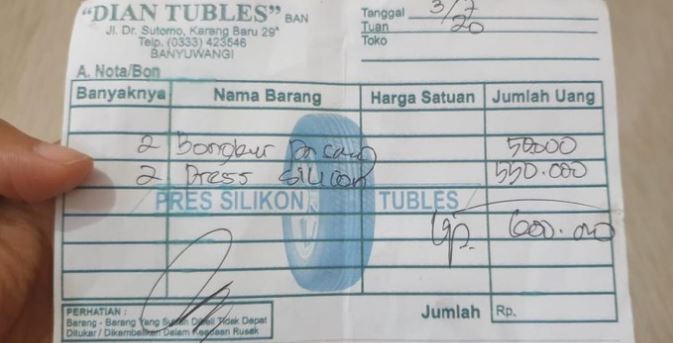 "DIAN TUBLES" BAN
Jl. Dr. Sutomo, Karang Baru 29ᴬ
Telp. (0333) 423546
BANYUWANGI
Tanggal 3/7
Tuan 20
Toko
A. Nota/Bon
Banyaknya Nama Barang Harga Satuan Jumlah Uang
2 Bongkar 50000
2 Press Silicon 550.000
PRES SILIKON TUBLES
600.000
Jumlah Rp.
PERHATIAN :
Barang - Barang Yang Sudah Dibeli Tidak Dapat
Ditukar / Dikembalikan Dalam Keadaan Rusak